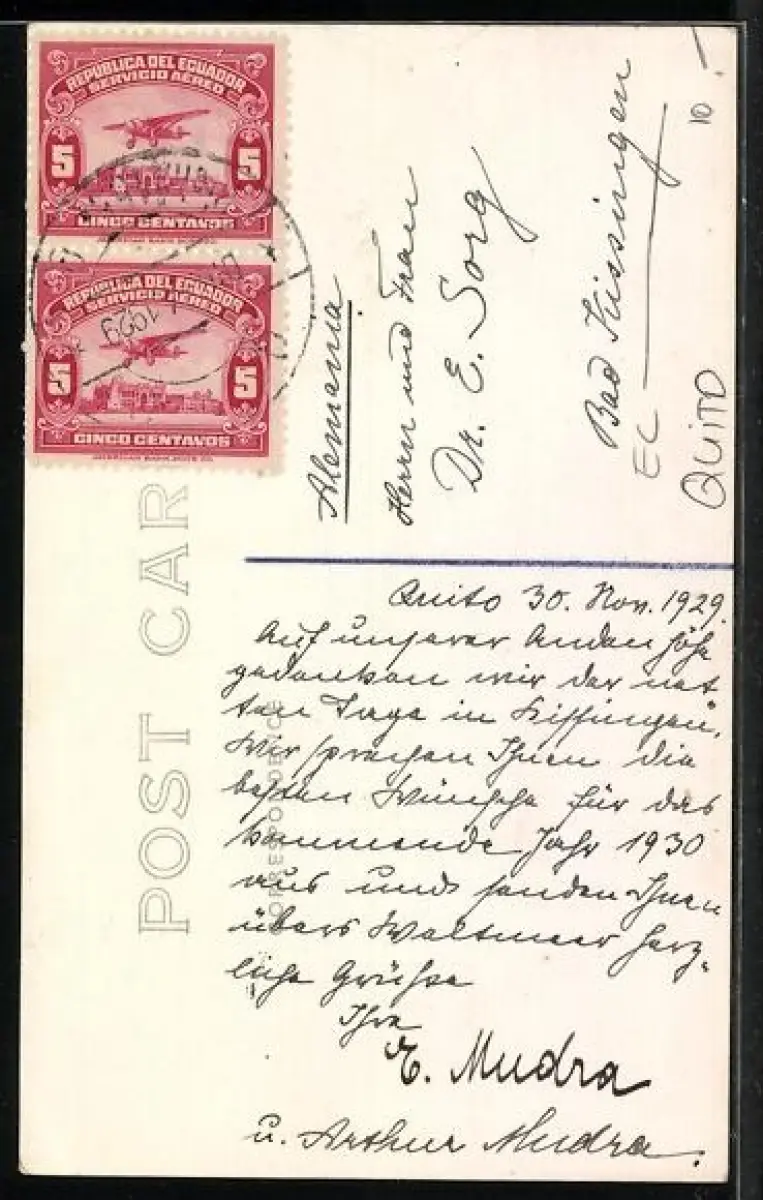 REPÚBLICA DEL ECUADOR
SERVICIO AÉREO
5 5
CINCO CENTAVOS
AMERICAN BANK NOTE CO.
REPÚBLICA DEL ECUADOR
SERVICIO AÉREO
5 5
CINCO CENTAVOS
AMERICAN BANK NOTE CO.
1929
POST CAR
CORRESPONDENCE
Alemania
Herrn und Frau
Dr. E. Sorg
Bad Kissingen
EC
QUITO
10.-
Quito 30. Nov. 1929.
Auf unserer Anden Höhe
gedenken wir der net
ten Tage in Kissingen.
Wir sprechen Ihnen die
besten Wünsche für das
kommende Jahr 1930
aus und senden Ihnen
übers Weltmeer herz-
liche Grüße
Ihre
E. Mudra
u. Arthur Mudra.